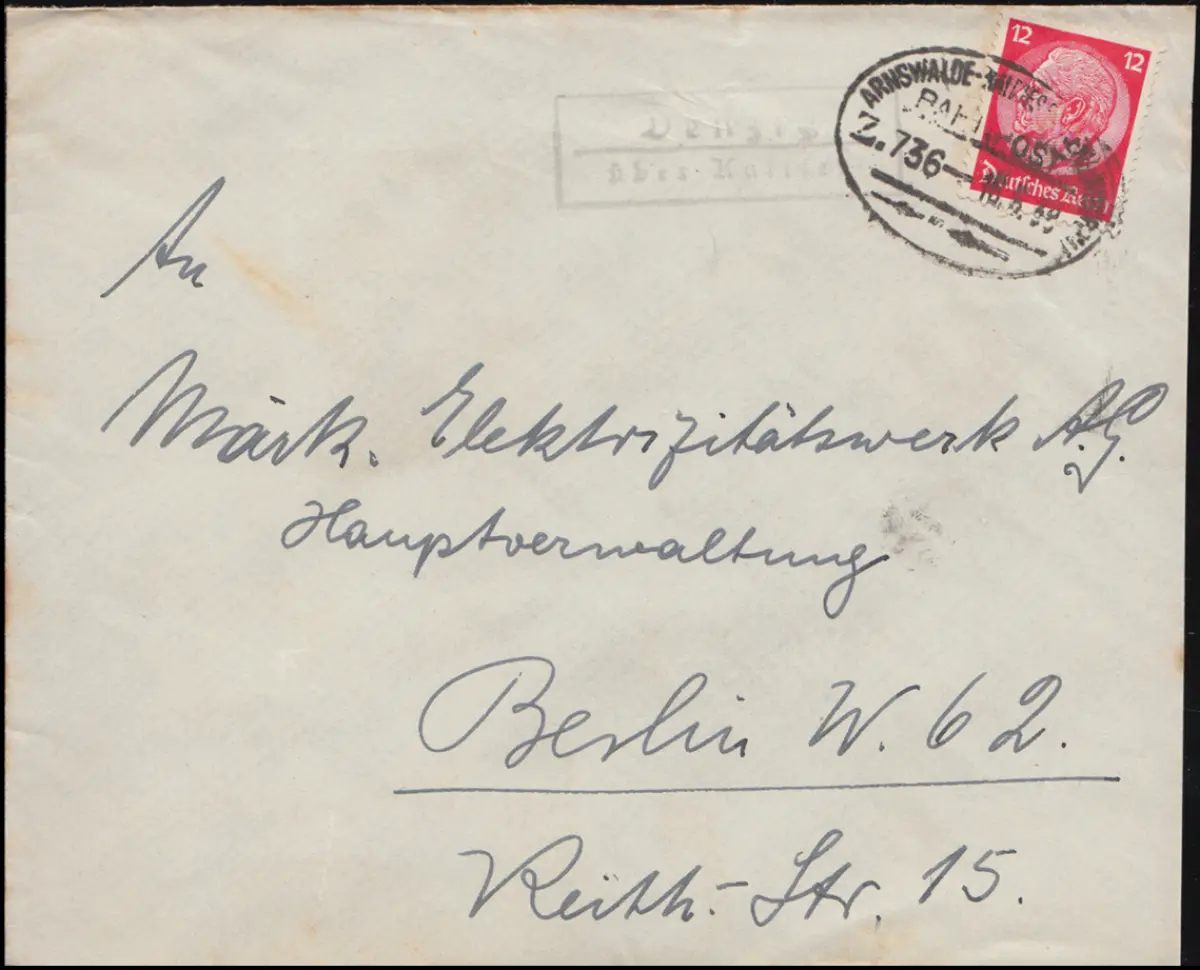 12 12
Deutsches Reich
ARNSWALDE-
BAHNPOST
Z. 736
über
An
Märk. Elektrizitätswerk A.G.
Hauptverwaltung
Berlin W. 62.
Keith-Str. 15.